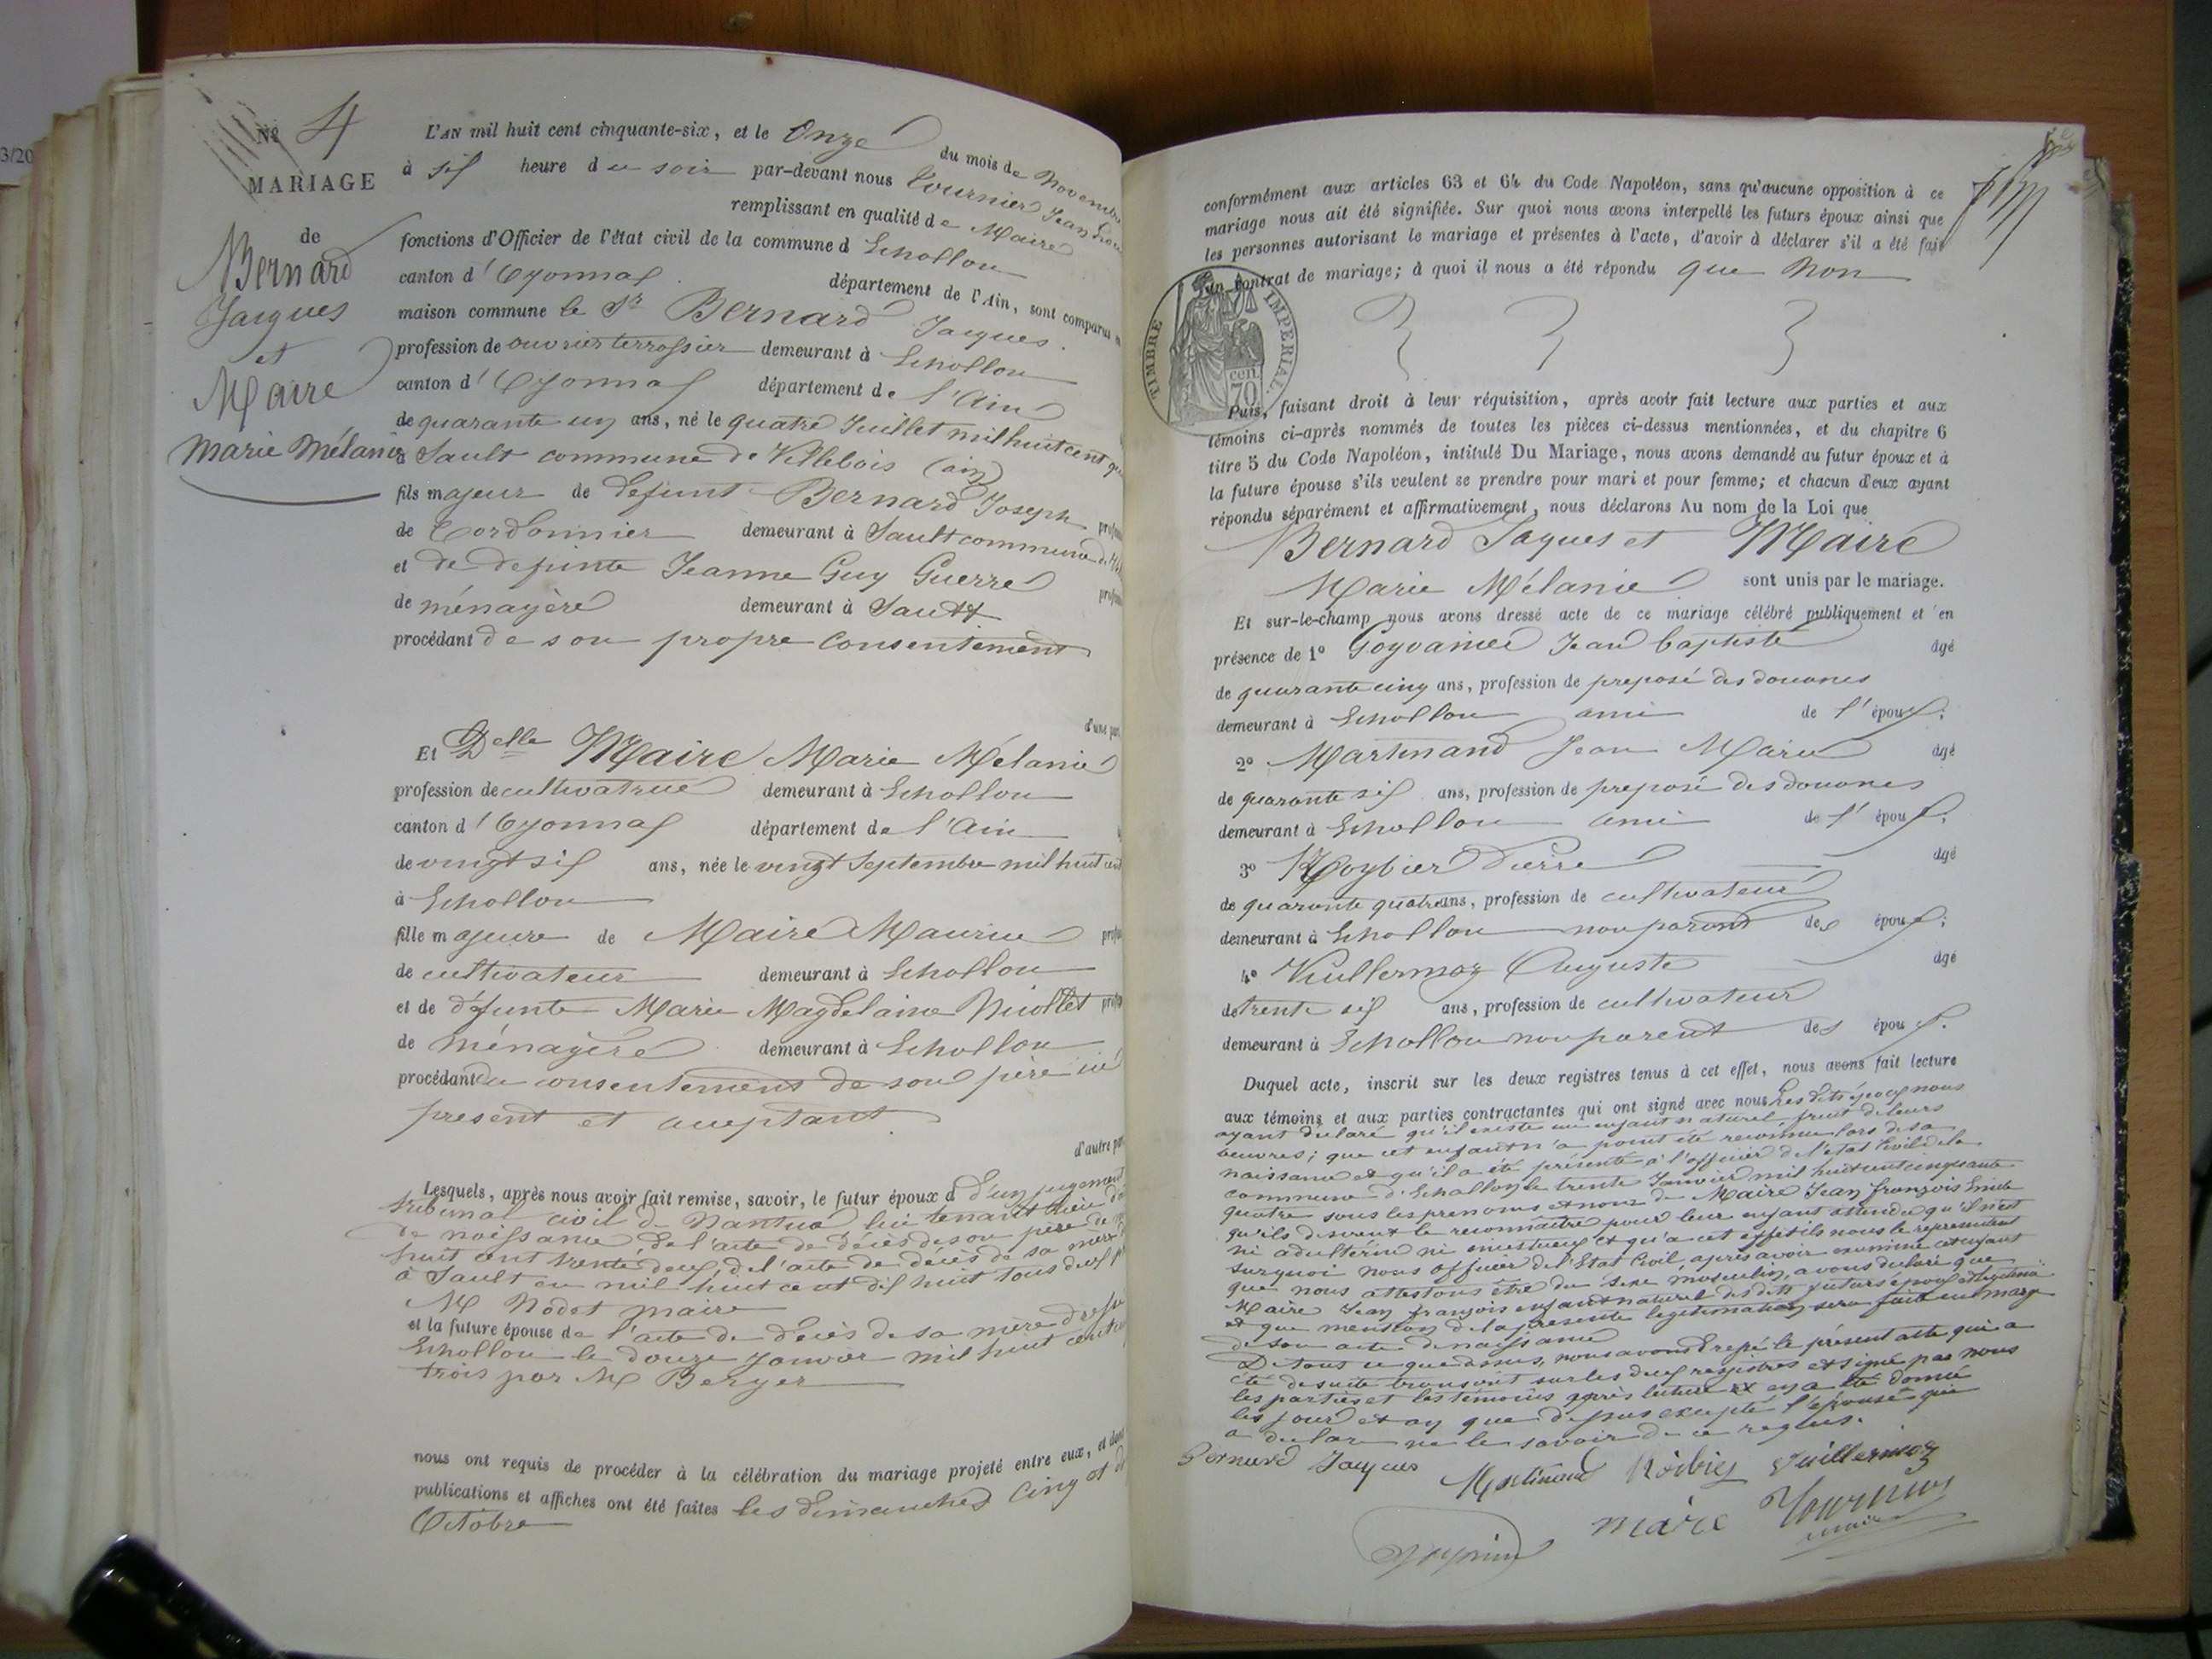 3/20
N° 4
MARIAGE
de
Bernard
Jacques
et
Maire
Marie Mélanie
L'AN mil huit cent cinquante-six, et le Onze du mois de Novembre
à six heure du soir par-devant nous Tournier Jean
remplissant en qualité de Maire
fonctions d'Officier de l'état civil de la commune d Echallon
canton d'Oyonnax département de l'Ain, sont comparus
maison commune le Sr Bernard Jacques
profession de ouvrier terrassier demeurant à Echallon
canton d'Oyonnax département de l'Ain
de quarante un ans, né le quatre Juillet mil huit cent
à Sault commune de Villebois (ain)
fils majeur de defunt Bernard Joseph
de Cordonnier demeurant à Sault commune de
et de defunte Jeanne Guy Guerre
de ménagère demeurant à Sault
procédant de son propre consentement
d'une part
Et Delle Maire Marie Mélanie
profession de cultivatrice demeurant à Echallon
canton d'Oyonnax département de l'Ain
de vingt six ans, née le vingt Septembre mil huit cent
à Echallon
fille majeure de Maire Maurice
de cultivateur demeurant à Echallon
et de défunte Marie Magdelaine Nicollet
de ménagère demeurant à Echallon
procédant du consentement de son père ici
présent et acceptant
d'autre part
Lesquels, après nous avoir fait remise, savoir, le futur époux d d'un jugement
tribunal civil de Nantua lui tenant lieu
de naissance de l'acte de décès de son père
huit cent trente deux, de l'acte de décès de sa mère
à Sault en mil huit cent dix huit tous deux
M Nodet maire
et la future épouse de l'acte de décès de sa mère dressé
Echallon le douze janvier mil huit cent
trois par M Berger
nous ont requis de procéder à la célébration du mariage projeté entre eux, et dont
publications et affiches ont été faites les dimanches cinq et
Octobre
conformément aux articles 63 et 64 du Code Napoléon, sans qu'aucune opposition à ce
mariage nous ait été signifiée. Sur quoi nous avons interpellé les futurs époux ainsi que
les personnes autorisant le mariage et présentes à l'acte, d'avoir à déclarer s'il a été fait
un contrat de mariage; à quoi il nous a été répondu que Non
TIMBRE IMPERIAL
70 cen.
Puis, faisant droit à leur réquisition, après avoir fait lecture aux parties et aux
témoins ci-après nommés de toutes les pièces ci-dessus mentionnées, et du chapitre 6
titre 5 du Code Napoléon, intitulé Du Mariage, nous avons demandé au futur époux et à
la future épouse s'ils veulent se prendre pour mari et pour femme; et chacun d'eux ayant
répondu séparément et affirmativement, nous déclarons Au nom de la Loi que
Bernard Jaques et Maire
Marie Mélanie sont unis par le mariage.
Et sur-le-champ nous avons dressé acte de ce mariage célébré publiquement et en
présence de 1° Jean baptiste âgé
de quarante cinq ans, profession de preposé des douanes
demeurant à Echallon ami de l'époux;
2° Martinand Jean Marie âgé
de quarante six ans, profession de preposé des douanes
demeurant à Echallon ami de l'époux;
3° Roybier Pierre âgé
de quarante quatre ans, profession de cultivateur
demeurant à Echallon non parent des époux;
4° Vuillermoz Auguste âgé
de trente six ans, profession de cultivateur
demeurant à Echallon non parent des époux.
Duquel acte, inscrit sur les deux registres tenus à cet effet, nous avons fait lecture
aux témoins et aux parties contractantes qui ont signé avec nous Les dits époux nous
ayant declaré qu'il existe un enfant naturel, fruit de leurs
oeuvres; que cet enfant n'a point été reconnu lors de sa
naissance et qu'il a été présenté à l'officier de l'état Civil de la
commune d'Echallon le trente Janvier mil huit cent cinquante
quatre sous les prenoms et nom de Maire Jean françois Emile
qu'ils desirent le reconnaitre pour leur enfant attendu qu'il n'est
ni adultérin ni incestueux et qu'a cet effet ils nous le représentent
surquoi nous officier de l'Etat Civil, après avoir examiné cet enfant
que nous attestons être du sexe masculin, avons declaré que
Maire Jean françois enfant naturel des dits futurs époux est légitimé
et que mention de la présente legitimation sera faite en marge
de son acte de naissance
De tout ce que dessus, nous avons dressé le présent acte qui a
été de suite transcrit sur les deux registres et signé par nous
les parties et les témoins après lecture et en a été donné
les jour et an que dessus excepté l'épouse qui
a declaré ne le savoir de ce requise.
Bernard Jacques Martinand Roibier Vuillermoz
maire Tournier
maire